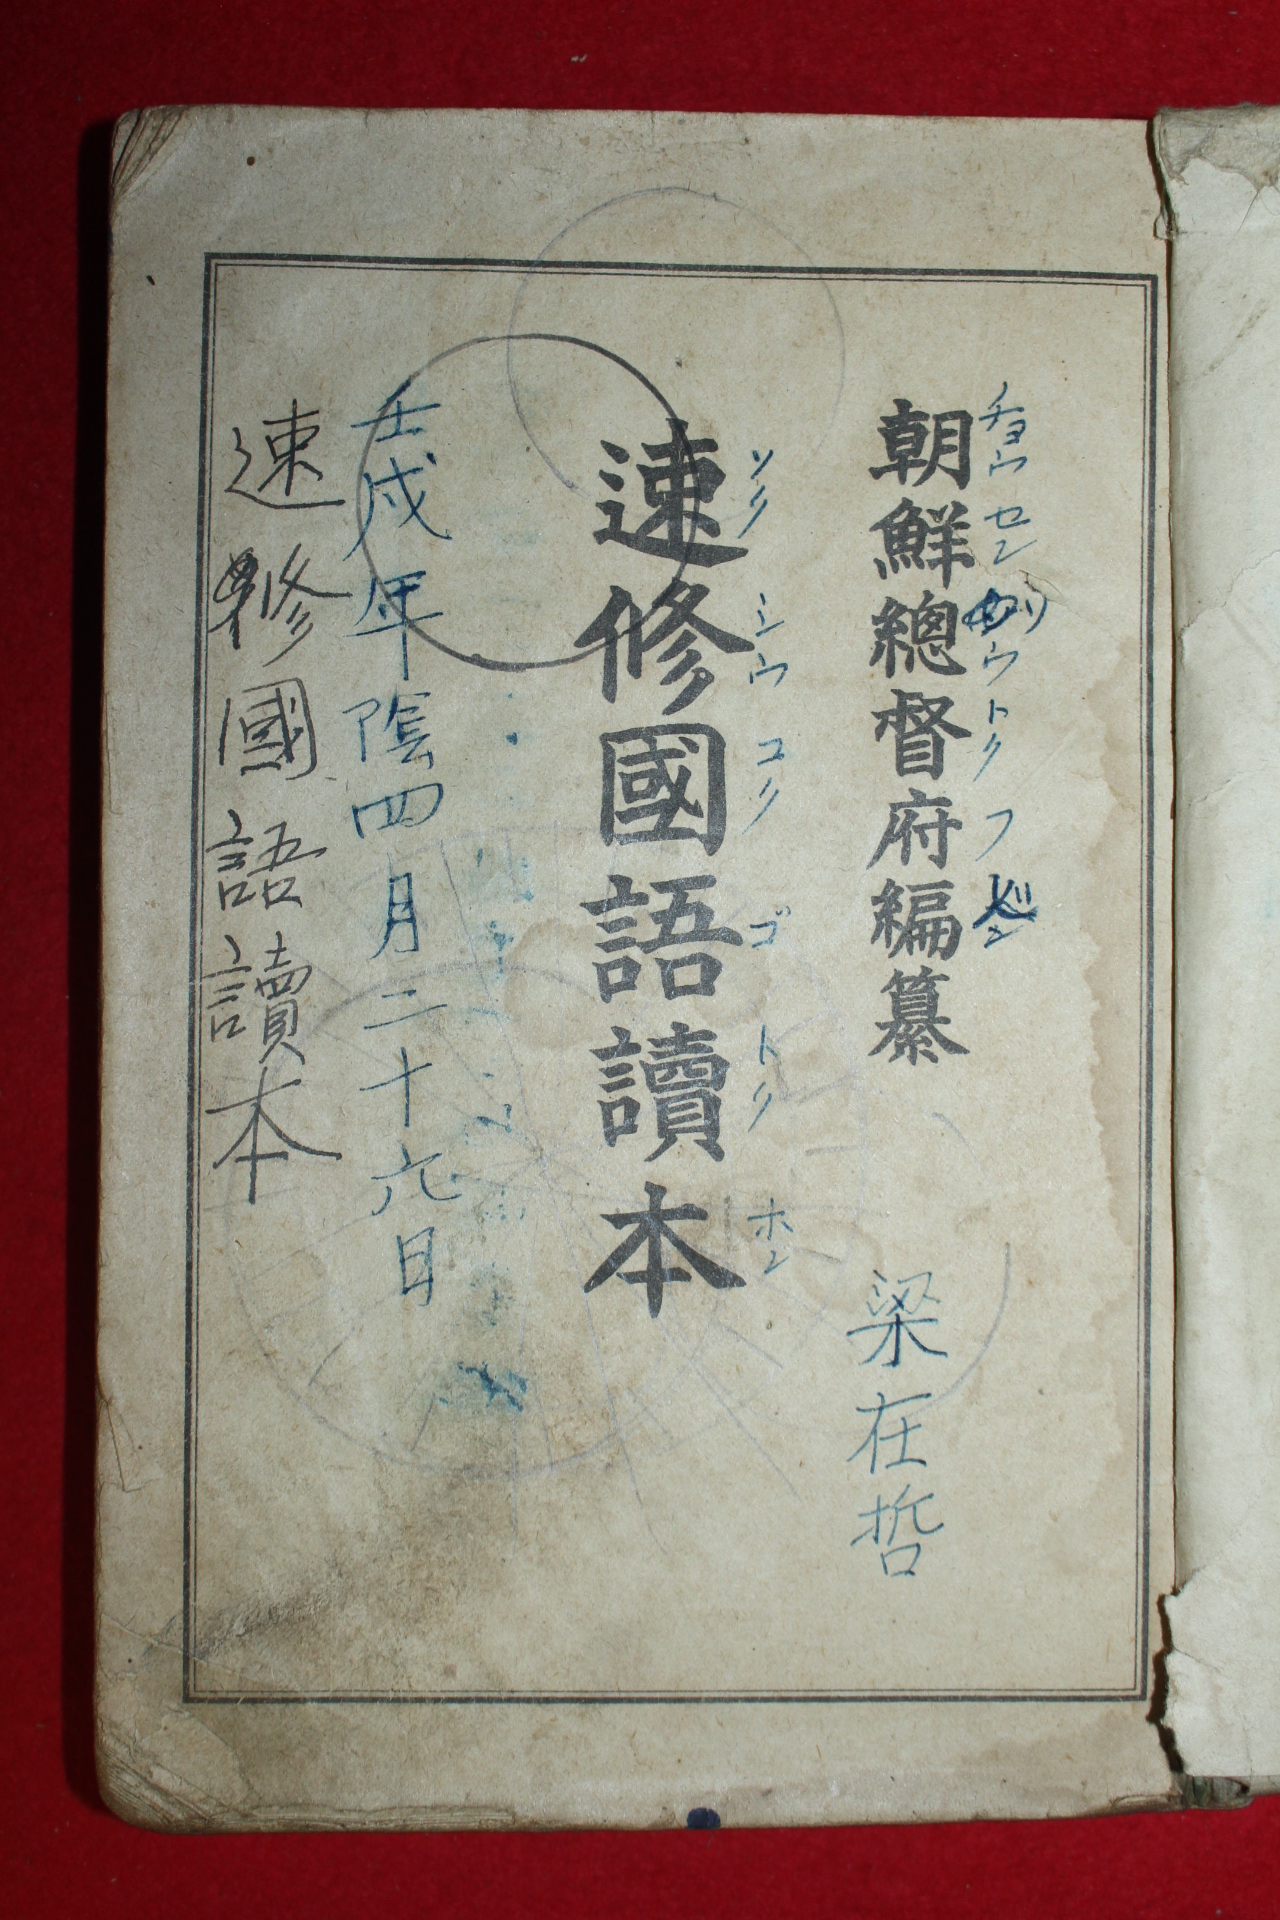 チヨウセン ウトクフ ン
朝鮮總督府編纂
梁在哲
ソク シウ コク ゴ トク ホン
速修國語讀本
壬戌年陰四月二十六日
速修國語讀本